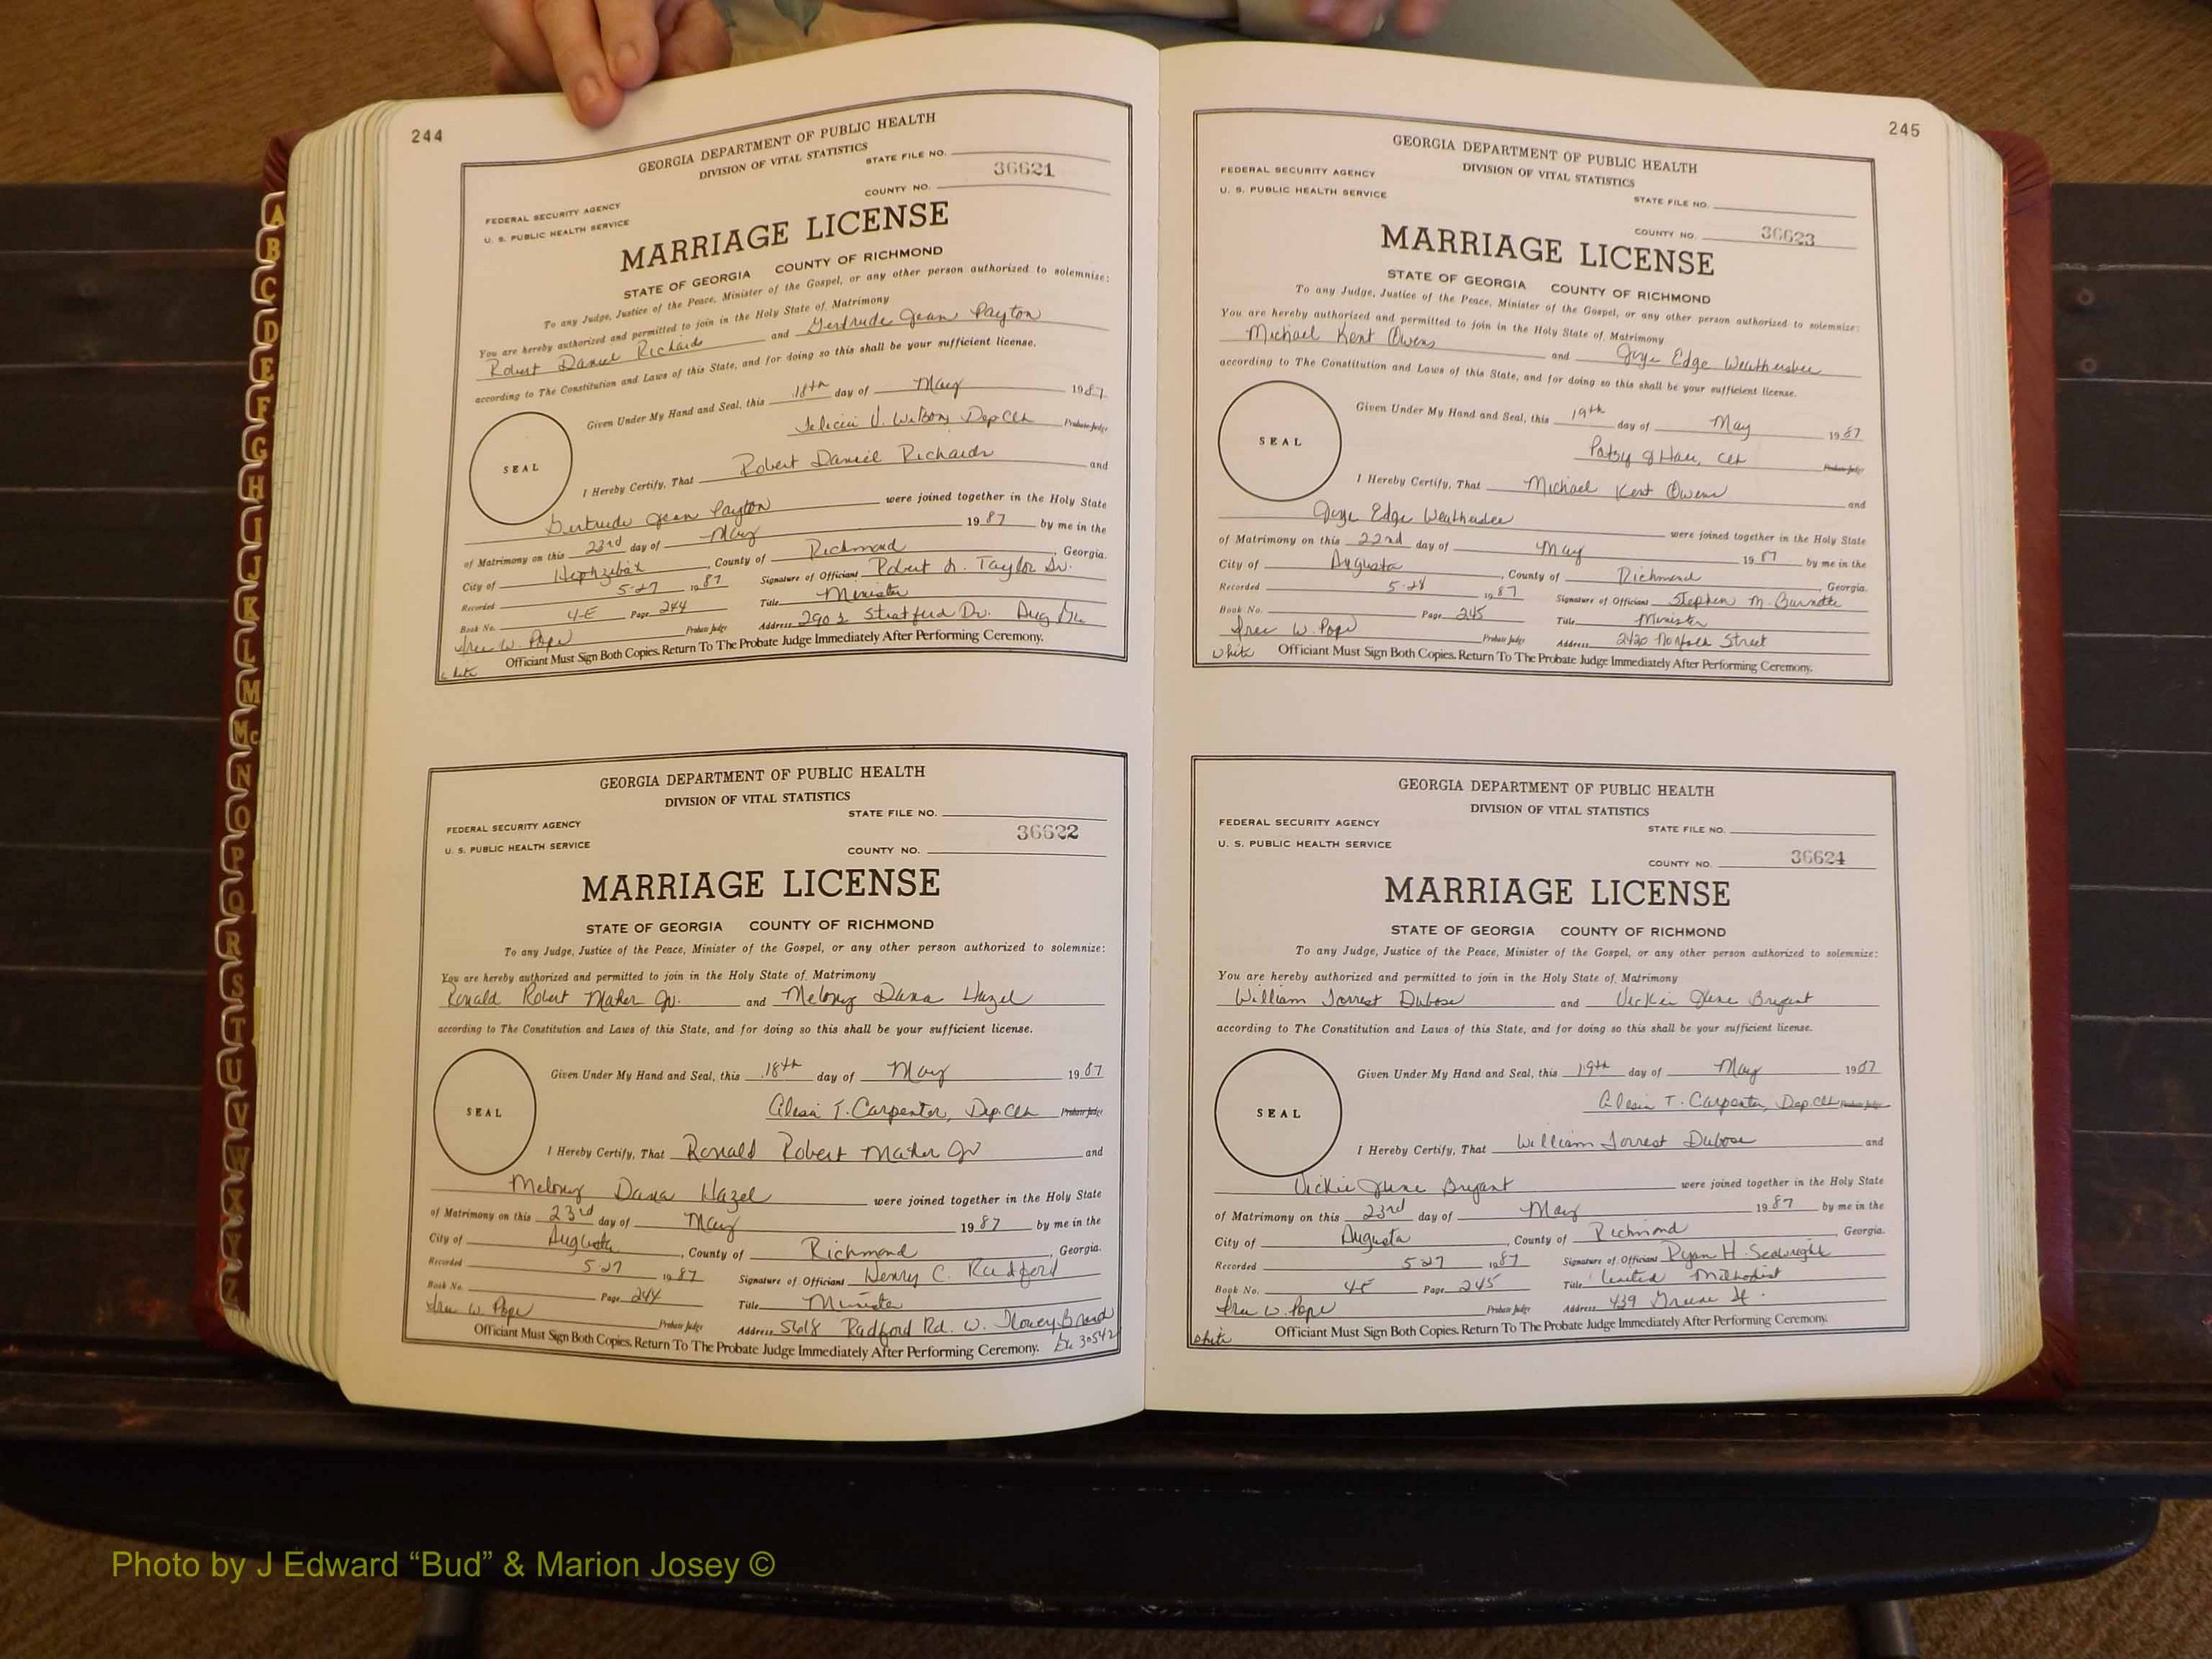 244
GEORGIA DEPARTMENT OF PUBLIC HEALTH
DIVISION OF VITAL STATISTICS
STATE FILE NO.
36621
COUNTY NO.
FEDERAL SECURITY AGENCY
U. S. PUBLIC HEALTH SERVICE
MARRIAGE LICENSE
STATE OF GEORGIA COUNTY OF RICHMOND
To any Judge, Justice of the Peace, Minister of the Gospel, or any other person authorized to solemnize:
You are hereby authorized and permitted to join in the Holy State of Matrimony
Robert Daniel Richards and Gertrude Jean Payton
according to The Constitution and Laws of this State, and for doing so this shall be your sufficient license.
Given Under My Hand and Seal, this 18th day of May 1987
Felicia V. Wilson, Dep Clk Probate Judge
SEAL
I Hereby Certify, That Robert Daniel Richards and
Gertrude Jean Payton were joined together in the Holy State
of Matrimony on this 23rd day of May 1987 by me in the
City of Hephzibah, County of Richmond, Georgia.
Recorded 5-27 1987 Signature of Officiant Robert L. Taylor Sr.
Book No. 4-E Page 244 Title Minister
W. Pope Probate Judge Address 2902 Stratford Dr. Aug Ga
Officiant Must Sign Both Copies. Return To The Probate Judge Immediately After Performing Ceremony.
white
GEORGIA DEPARTMENT OF PUBLIC HEALTH
DIVISION OF VITAL STATISTICS
STATE FILE NO.
36622
FEDERAL SECURITY AGENCY
U. S. PUBLIC HEALTH SERVICE
COUNTY NO.
MARRIAGE LICENSE
STATE OF GEORGIA COUNTY OF RICHMOND
To any Judge, Justice of the Peace, Minister of the Gospel, or any other person authorized to solemnize:
You are hereby authorized and permitted to join in the Holy State of Matrimony
Ronald Robert Maher Jr. and Melony Dana Hazel
according to The Constitution and Laws of this State, and for doing so this shall be your sufficient license.
Given Under My Hand and Seal, this 18th day of May 1987
Alesia T. Carpenter, Dep. Clk Probate Judge
SEAL
I Hereby Certify, That Ronald Robert Maher Jr and
Melony Dana Hazel were joined together in the Holy State
of Matrimony on this 23rd day of May 1987 by me in the
City of Augusta, County of Richmond, Georgia.
Recorded 5-27 1987 Signature of Officiant Henry C. Radford
Book No. Page 244 Title Minister
W. Pope Probate Judge Address 5618 Radford Rd. W. Flowery Branch
Officiant Must Sign Both Copies. Return To The Probate Judge Immediately After Performing Ceremony. Ga 30542
245
GEORGIA DEPARTMENT OF PUBLIC HEALTH
DIVISION OF VITAL STATISTICS
FEDERAL SECURITY AGENCY
U. S. PUBLIC HEALTH SERVICE
STATE FILE NO.
COUNTY NO. 36623
MARRIAGE LICENSE
STATE OF GEORGIA COUNTY OF RICHMOND
To any Judge, Justice of the Peace, Minister of the Gospel, or any other person authorized to solemnize:
You are hereby authorized and permitted to join in the Holy State of Matrimony
Michael Kent Owens and Joye Edge Weathersbee
according to The Constitution and Laws of this State, and for doing so this shall be your sufficient license.
Given Under My Hand and Seal, this 19th day of May 1987
Patsy J Hall, Clk Probate Judge
SEAL
I Hereby Certify, That Michael Kent Owens and
Joye Edge Weathersbee were joined together in the Holy State
of Matrimony on this 22nd day of May 1987 by me in the
City of Augusta, County of Richmond, Georgia.
Recorded 5-28 1987 Signature of Officiant Stephen M. Burnette
Book No. Page 245 Title Minister
W. Pope Probate Judge Address 2420 Norfolk Street
white Officiant Must Sign Both Copies. Return To The Probate Judge Immediately After Performing Ceremony.
GEORGIA DEPARTMENT OF PUBLIC HEALTH
DIVISION OF VITAL STATISTICS
FEDERAL SECURITY AGENCY
STATE FILE NO.
U. S. PUBLIC HEALTH SERVICE
COUNTY NO. 36624
MARRIAGE LICENSE
STATE OF GEORGIA COUNTY OF RICHMOND
To any Judge, Justice of the Peace, Minister of the Gospel, or any other person authorized to solemnize:
You are hereby authorized and permitted to join in the Holy State of Matrimony
William Forrest Dubose and Vickie Jene Bryant
according to The Constitution and Laws of this State, and for doing so this shall be your sufficient license.
Given Under My Hand and Seal, this 19th day of May 1987
Alesia T. Carpenter, Dep Clk Probate Judge
SEAL
I Hereby Certify, That William Forrest Dubose and
Vickie Jene Bryant were joined together in the Holy State
of Matrimony on this 23rd day of May 1987 by me in the
City of Augusta, County of Richmond, Georgia.
Recorded 5-27 1987 Signature of Officiant Ryan H. Seawright
Book No. 4E Page 245 Title United Methodist
W. Pope Probate Judge Address 439 Greene St.
white Officiant Must Sign Both Copies. Return To The Probate Judge Immediately After Performing Ceremony.
A
B
C
D
E
F
G
H
I
J
K
L
M
Mc
N
O
P
Q
R
S
T
U
V
W
X
Y
Z
Photo by J Edward “Bud” & Marion Josey ©